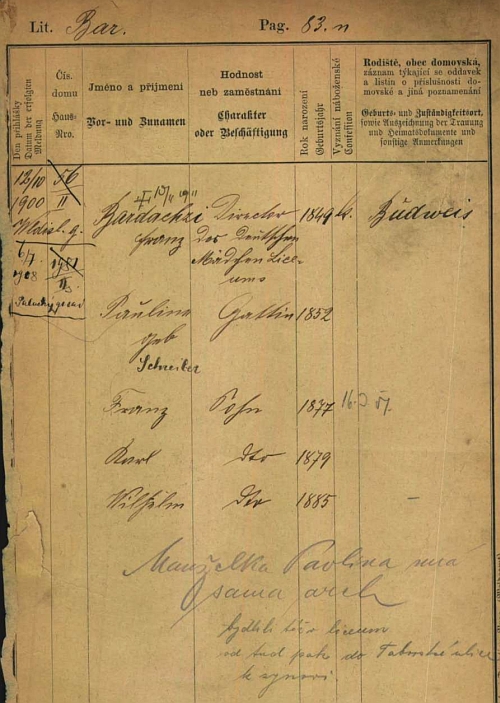 Lit. Bar. Pag. 83. n
Den přihlášky
Datum der erfolgten
Meldung
Čís.
domu
Haus-
Nro.
Jméno a příjmení
Vor- und Zunamen
Hodnost
neb zaměstnání
Charakter
oder Beschäftigung
Rok narození
Geburtsjahr
Vyznání náboženské
Confession
Rodiště, obec domovská,
záznam týkající se oddavek
a listin o příslušnosti do-
movské a jiná poznamenání
Geburts- und Zuständigkeitsort,
sowie Aufzeichnung der Trauung
und Heimatsdokumente und
sonstige Anmerkungen
12/10 56
1900 II
Bardachzi Director 1849 k. Budweis
Franz des Deutschen
Mädchen Lice-
ums
6/7
1908
Pauline Gattin 1852
geb
Schreiber
Franz Sohn 1877
Karl dto 1879
Wilhelm dto 1885
Manželka Pavlina má
sama arch
bydleli téžo liceum
od tud pak do Táborské ulice
k synovi.